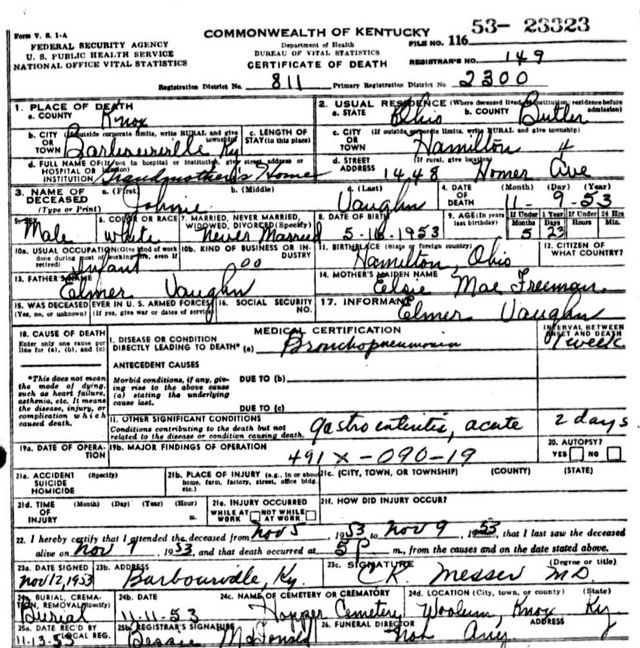 Form V. S. 1-A
COMMONWEALTH OF KENTUCKY
53- 23323
FEDERAL SECURITY AGENCY
Department of Health
FILE NO. 116
U. S. PUBLIC HEALTH SERVICE
BUREAU OF VITAL STATISTICS
NATIONAL OFFICE VITAL STATISTICS
CERTIFICATE OF DEATH
REGISTRAR'S NO. 149
Registration District No. 811
Primary Registration District No. 2300
1. PLACE OF DEATH
a. COUNTY Knox
2. USUAL RESIDENCE (Where deceased lived. If institution, residence before admission)
a. STATE Ohio b. COUNTY Butler
b. CITY OR TOWN (If outside corporate limits, write RURAL and give township) Barbourville Ky
c. LENGTH OF STAY (in this place)
c. CITY OR TOWN (If outside corporate limits, write RURAL and give township) Hamilton
d. FULL NAME OF HOSPITAL OR INSTITUTION (If not in hospital or institution, give street address or location) Grandmother's Home
d. STREET ADDRESS (If rural, give location) 1448 Homer Ave
3. NAME OF DECEASED (Type or Print)
a. (First) Johnie b. (Middle) c. (Last) Vaughn
4. DATE OF DEATH (Month) (Day) (Year) 11- 9 -53
5. SEX Male
6. COLOR OR RACE White
7. MARRIED, NEVER MARRIED, WIDOWED, DIVORCED (Specify) Never Married
8. DATE OF BIRTH 5-16-1953
9. AGE (In years last birthday) If Under 1 Year If Under 24 Hrs
Months 5 Days 23 Hours Min.
10a. USUAL OCCUPATION (Give kind of work done during most of working life, even if retired) Infant
10b. KIND OF BUSINESS OR INDUSTRY 00
11. BIRTHPLACE (State or foreign country) Hamilton, Ohio
12. CITIZEN OF WHAT COUNTRY?
13. FATHER'S NAME Elmer Vaughn
14. MOTHER'S MAIDEN NAME Elsie Mae Freeman
15. WAS DECEASED EVER IN U. S. ARMED FORCES? (Yes, no, or unknown) (If yes, give war or dates of service)
16. SOCIAL SECURITY NO.
17. INFORMANT Elmer Vaughn
18. CAUSE OF DEATH
Enter only one cause per line for (a), (b), and (c)
MEDICAL CERTIFICATION
INTERVAL BETWEEN ONSET AND DEATH
I. DISEASE OR CONDITION DIRECTLY LEADING TO DEATH* (a) Bronchopneumonia 1 week
*This does not mean the mode of dying, such as heart failure, asthenia, etc. It means the disease, injury, or complication which caused death.
ANTECEDENT CAUSES
Morbid conditions, if any, giving rise to the above cause (a) stating the underlying cause last.
DUE TO (b)
DUE TO (c)
II. OTHER SIGNIFICANT CONDITIONS
Conditions contributing to the death but not related to the disease or condition causing death. gastroenteritis, acute 2 days
19a. DATE OF OPERATION
19b. MAJOR FINDINGS OF OPERATION
491X-090-19
20. AUTOPSY? YES NO
21a. ACCIDENT SUICIDE HOMICIDE (Specify)
21b. PLACE OF INJURY (e.g., in or about home, farm, factory, street, office bldg., etc.)
21c. (CITY, TOWN, OR TOWNSHIP) (COUNTY) (STATE)
21d. TIME OF INJURY (Month) (Day) (Year) (Hour) m.
21e. INJURY OCCURRED WHILE AT WORK NOT WHILE AT WORK
21f. HOW DID INJURY OCCUR?
22. I hereby certify that I attended the deceased from Nov 5, 1953 to Nov 9, 1953, that I last saw the deceased
alive on Nov 9 1953, and that death occurred at 5 P m., from the causes and on the date stated above.
23a. DATE SIGNED Nov 12, 1953
23b. ADDRESS Barbourville, Ky.
23c. SIGNATURE (Degree or title) CR. Messer MD
24a. BURIAL, CREMATION, REMOVAL (Specify) Burial
24b. DATE 11-11-53
24c. NAME OF CEMETERY OR CREMATORY Hopper Cemetery
24d. LOCATION (City, town, or county) (State) Woolum, Knox Ky.
25a. DATE REC'D BY LOCAL REG. 11-13-53
25b. REGISTRAR'S SIGNATURE Bessie McDonald
26. FUNERAL DIRECTOR ADDRESS